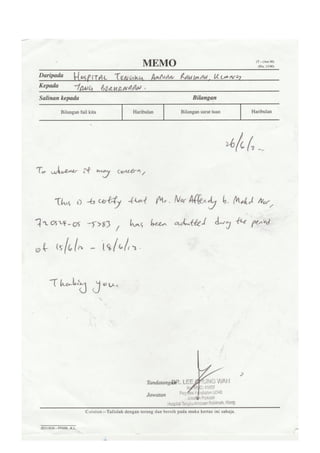 MEMO
Daripada HOSPITAL TENGKU AMPUAN RAHIMAH, KLANG
Kepada YANG BERKENAAN.
Salinan kepada Bilangan
Bilangan fail kita Haribulan Bilangan surat tuan Haribulan
26/6/12
To whoever it may concern,
This is to certify that Mr. Nor Affendy b. Mohd Nor,
720524-05-5283, has been admitted during the period
of 15/6/12 - 18/6/12.
Thanking you.
Tandatangan DR. LEE CHUNG WAH
Jawatan
Hospital Tengku Ampuan Rahimah, Klang.
Catatan - Tulislah dengan terang dan bersih pada muka kertas ini sahaja.